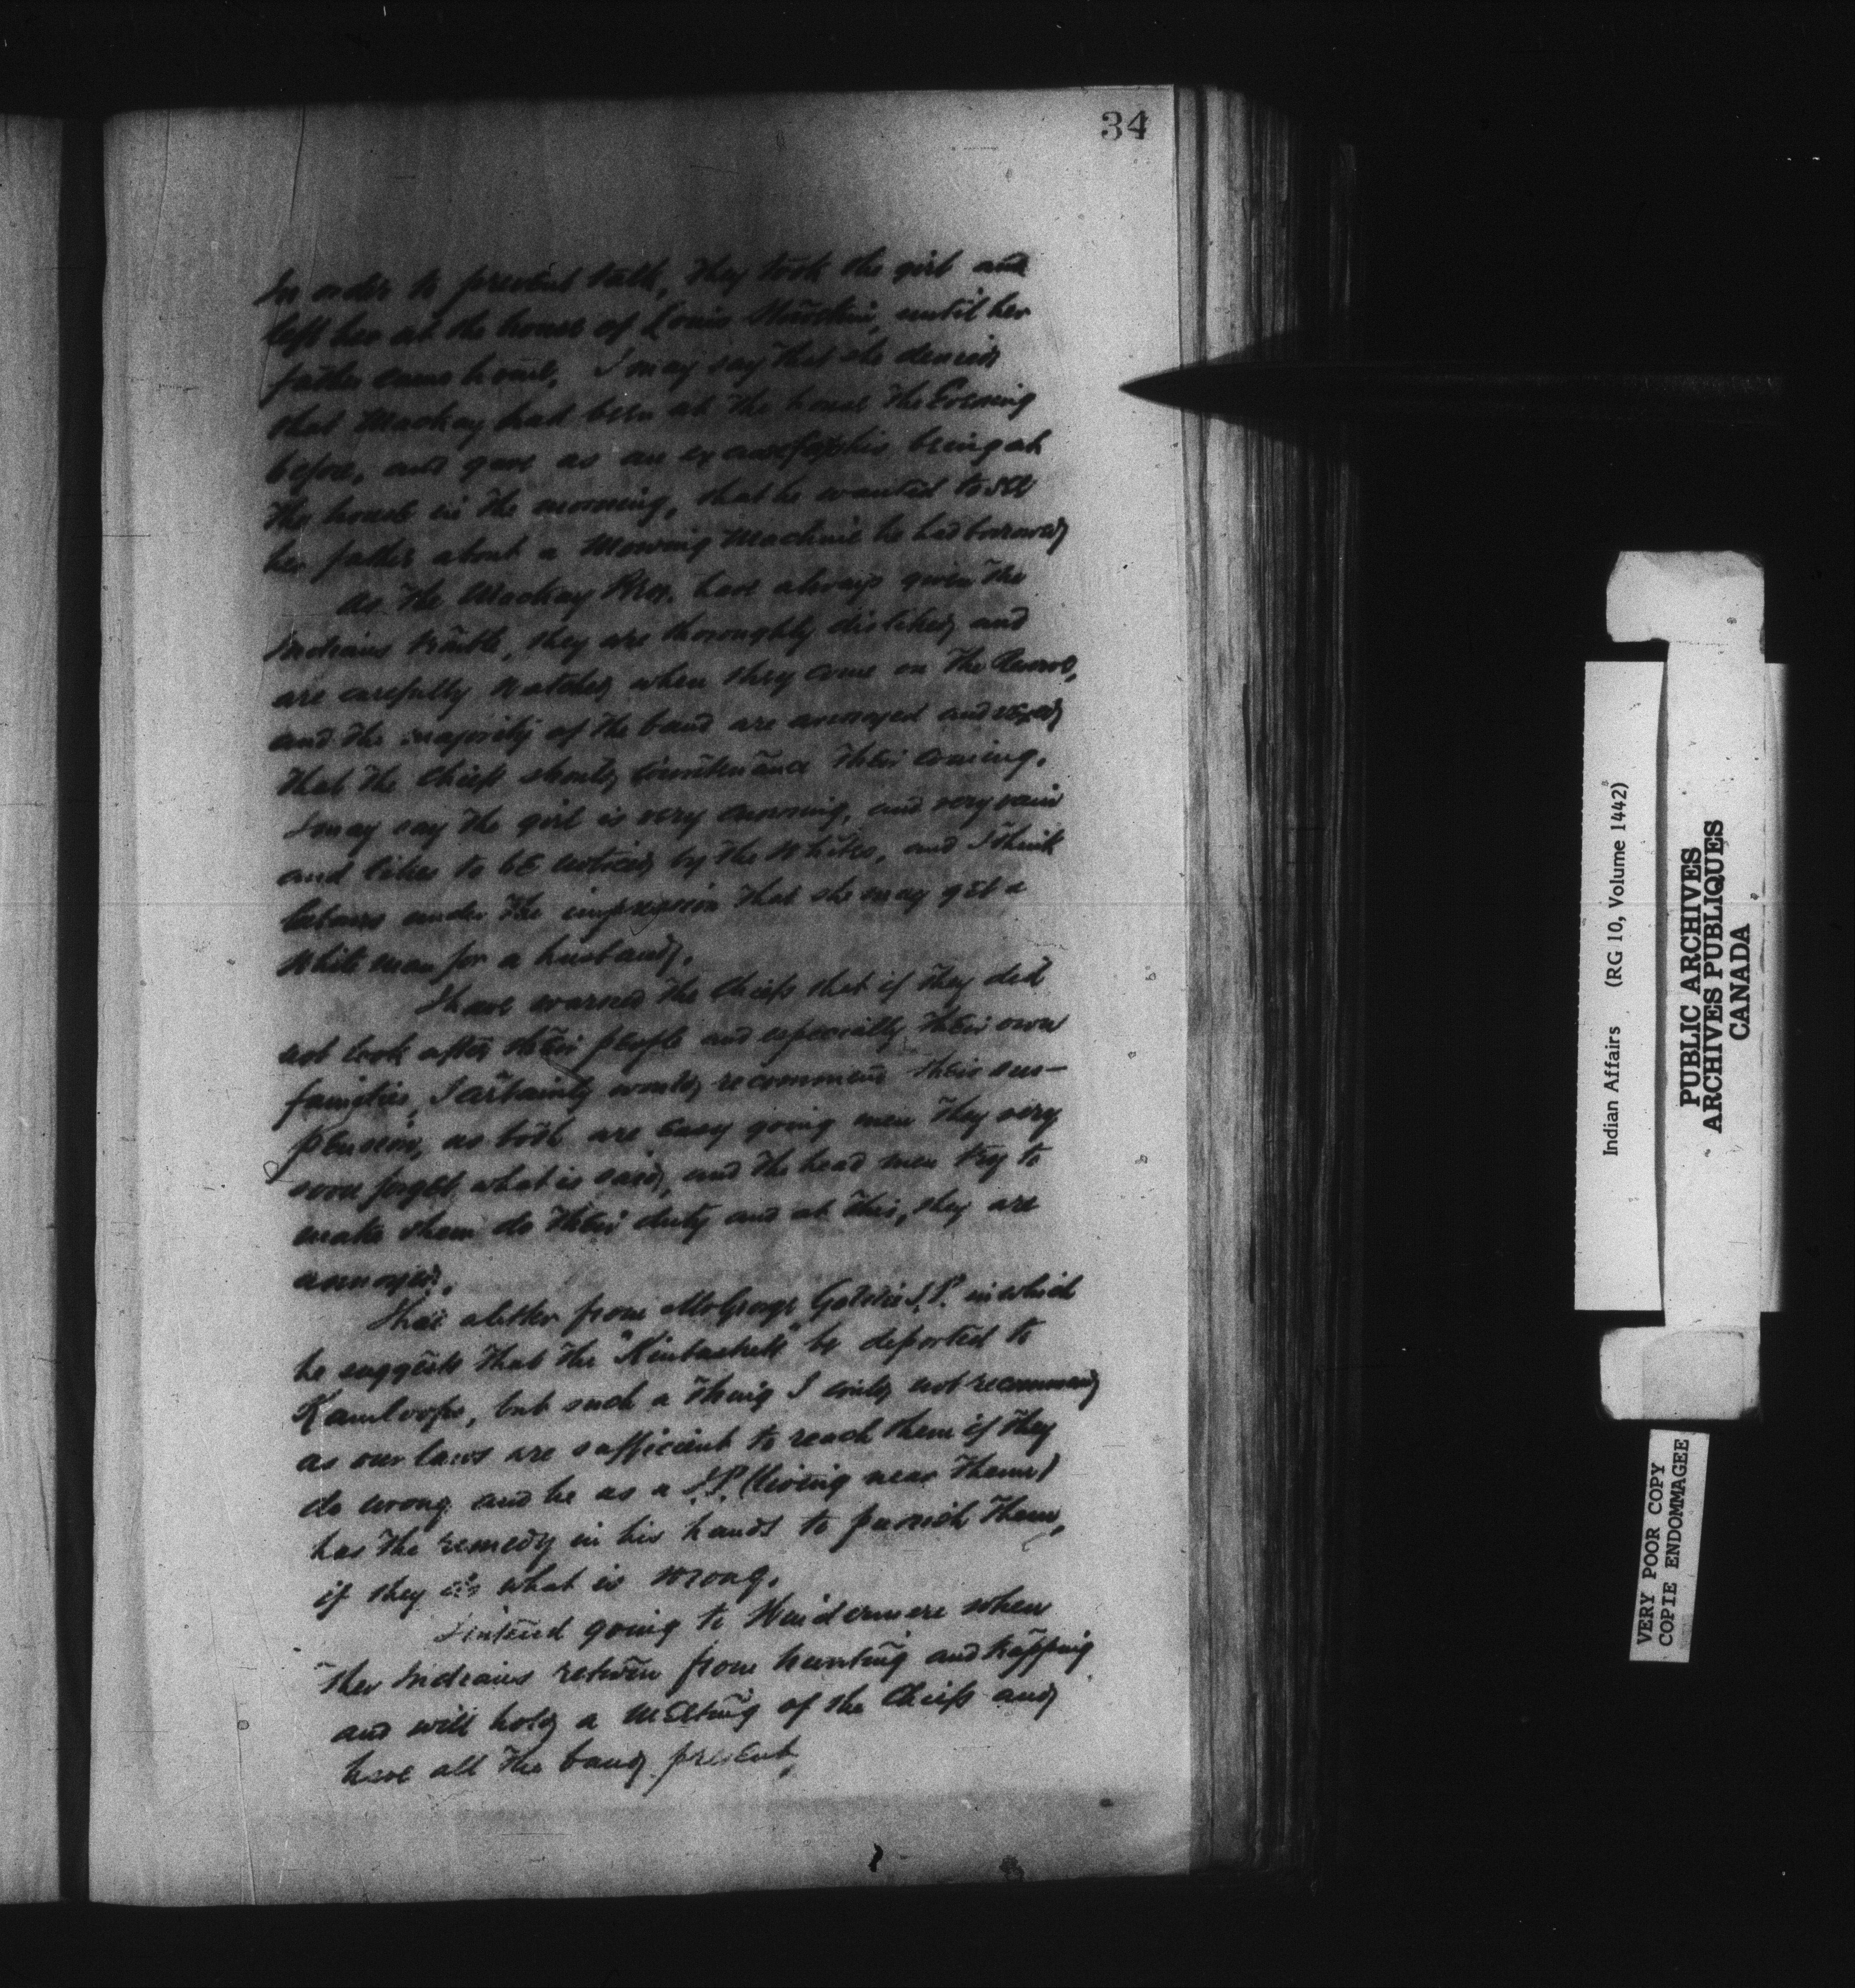 34
In order to prevent talk, they took the girl and
left her at the house of Louis, until her
father came home. I may say that she denied
that Mackay had been at the house the Evening
before, and gave as an excuse for his being at
the house in the morning, that he wanted to see
her father about a Mowing Machine he had borrowed
As the Mackay Bros. have always given the
Indians trouble, they are thoroughly disliked, and
are carefully watched when they come on the Reserve,
and the majority of the band are annoyed and vexed
that the Chiefs should countenance their coming.
I may say the girl is very cunning, and very vain
and likes to be noticed by the Whites, and I think
labours under the impression that she may get a
White man for a husband.
I have warned the Chiefs that if they did
not look after their people and especially their own
families, I certainly would recommend their sus-
pension, as both are easy going men they very
soon forget what is said, and the head men try to
make them do their duty and at this, they are
annoyed.
I have a letter from Mr George Goldie J.P. in which
he suggests that the "Kinbaskets" be deported to
Kamloops, but such a thing I could not recommend
as our laws are sufficient to reach them if they
do wrong and he as a J.P. (living near them)
has the remedy in his hands to punish them,
if they do what is wrong.
I intend going to Windermere when
the Indians return from hunting and trapping
and will hold a meeting of the Chiefs and
have all the band present,
Indian Affairs (RG 10, Volume 1442)
PUBLIC ARCHIVES
ARCHIVES PUBLIQUES
CANADA
VERY POOR COPY
COPIE ENDOMMAGEE